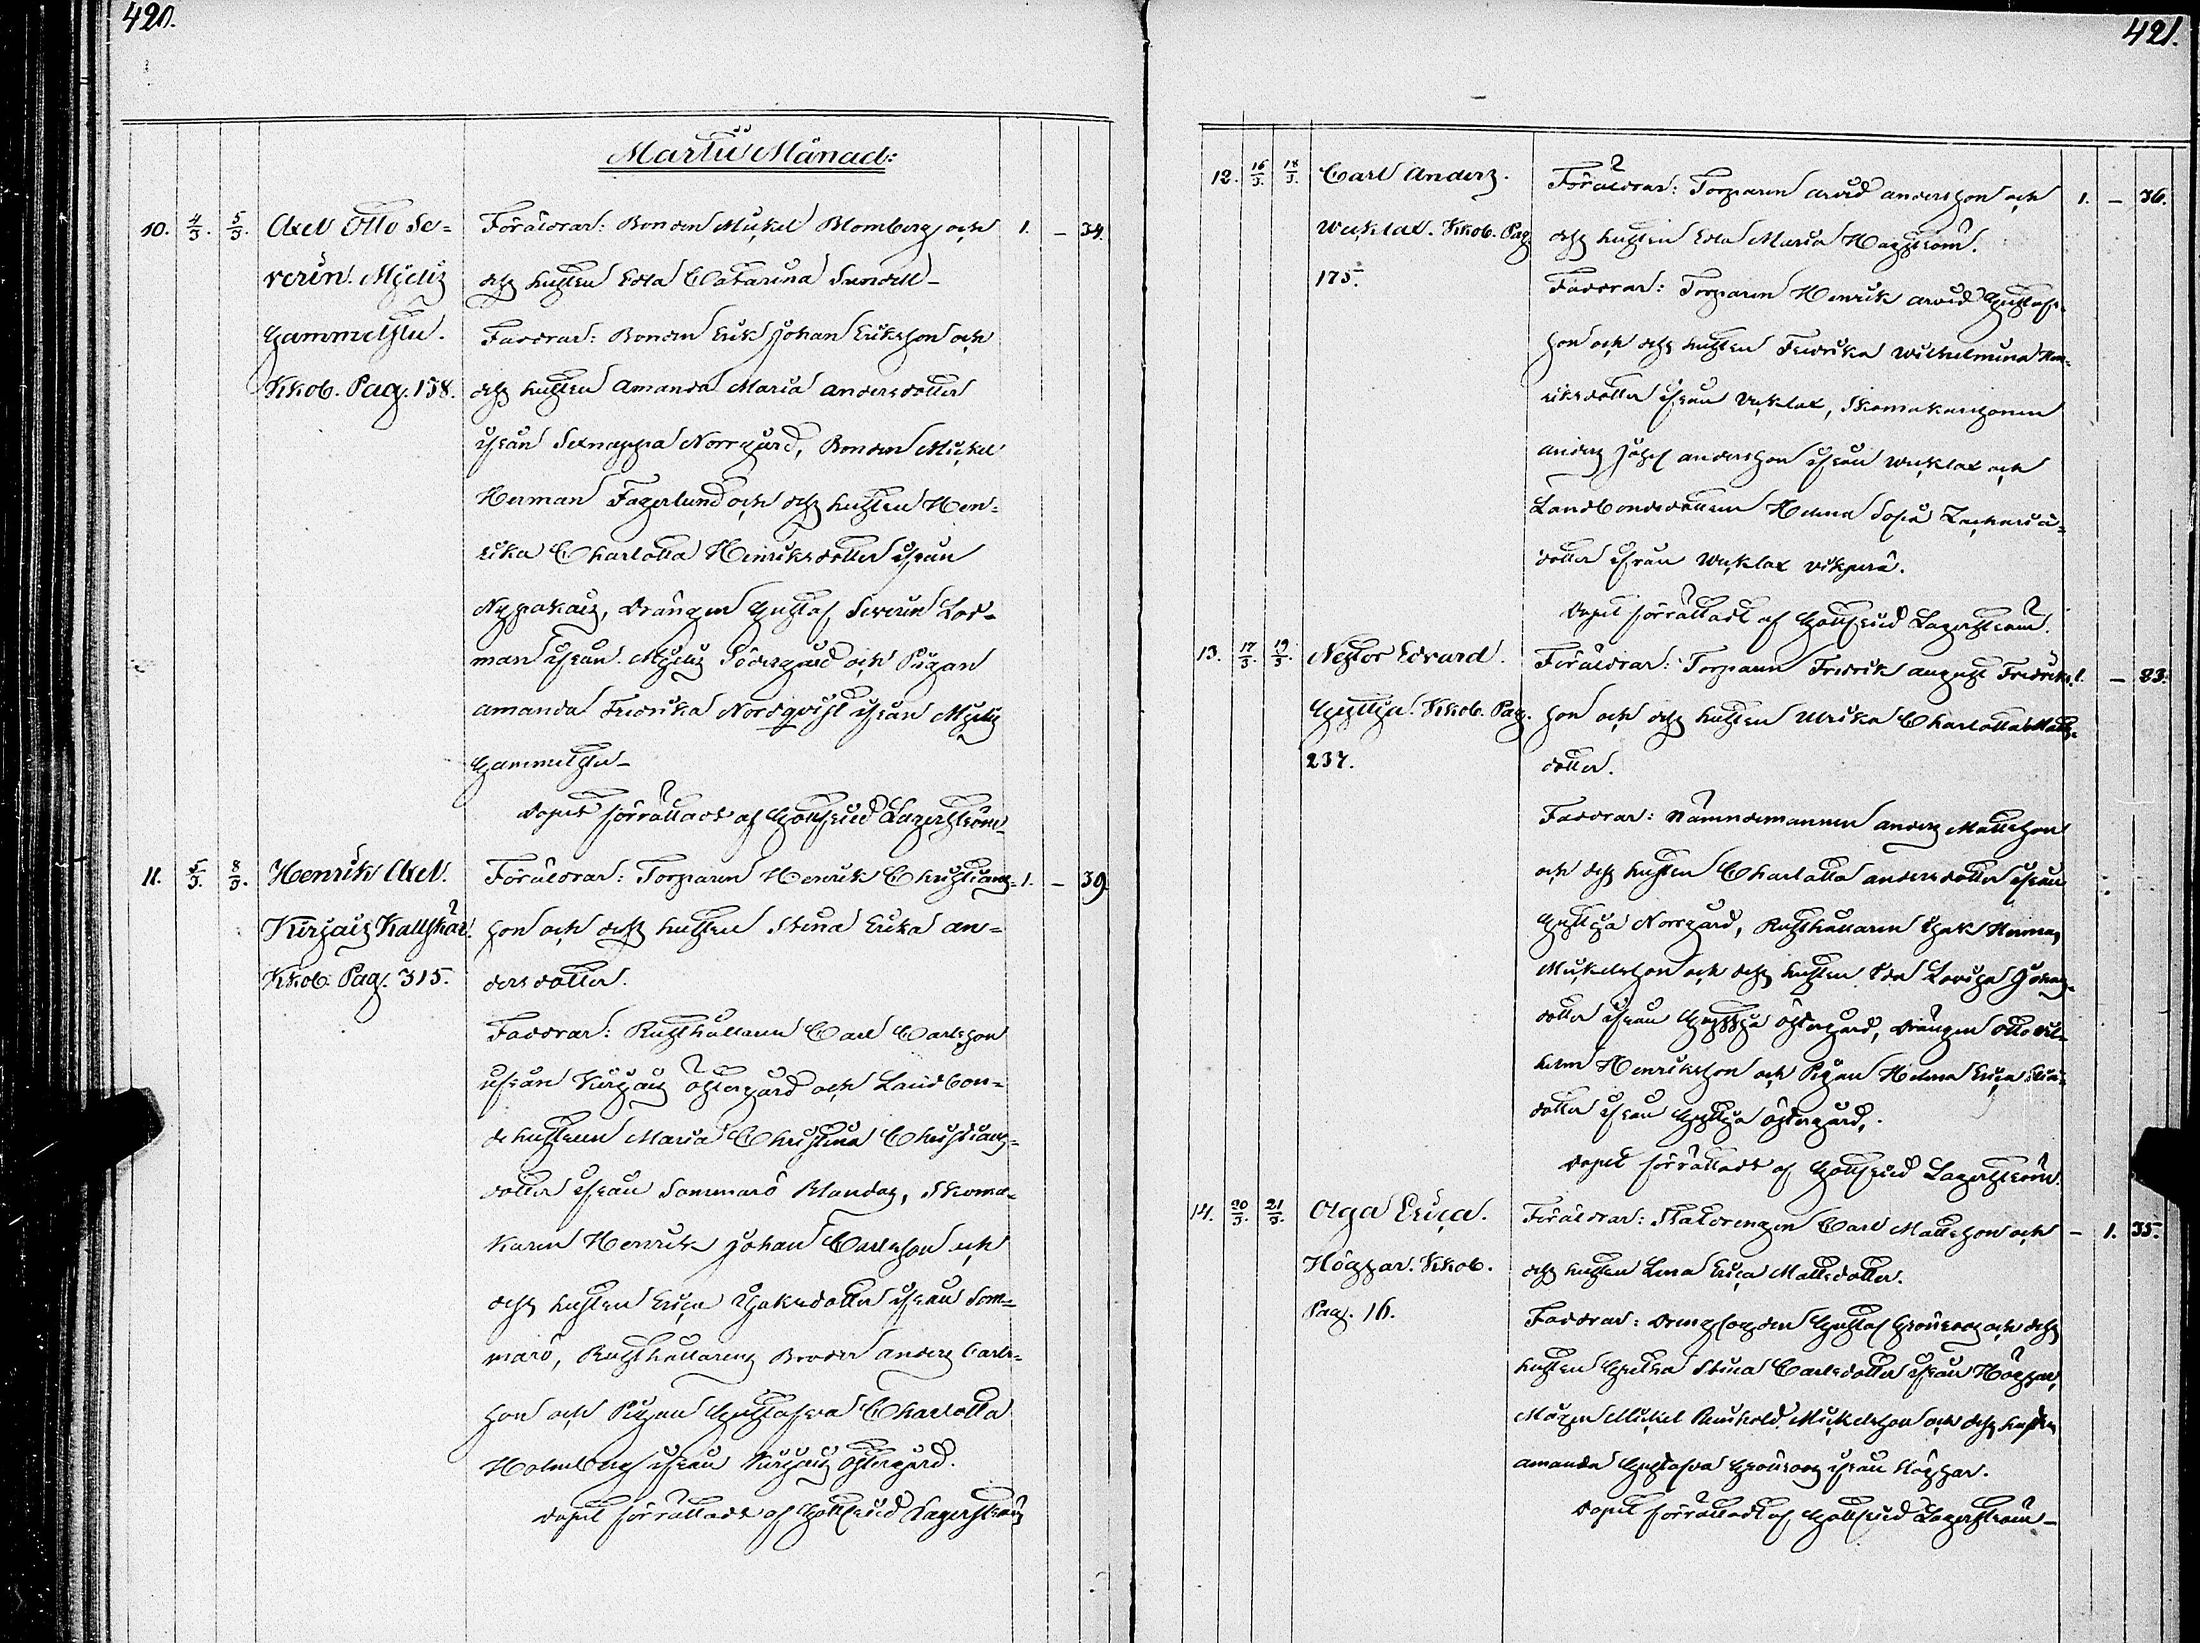 420.
Martii Månad:
10. 4/3. 5/3. Axel Otto Se= Föräldrar: Bonden Mickel Blomberg och 1. – 34.
verin. Mjelis dess hustru Eda Catarina Sundell –
Gammelstu. Faddrar: Bonden Erik Johan Eriksson och
Kkob. Pag. 138. dess hustru Amanda Maria Andersdotter
ifrån Setnappa Norrgård, Bonden Mickel
Herman Fagerlund och dess hustru Hen=
rika Charlotta Henriksdotter ifrån
Drängen Gustaf Severin Lod=
man ifrån Mjelis Södergård och Pigan
Amanda Fredrika Nordqvist ifrån Mjelis
Gammelstu –
Dopet förrättadt af Gottfried Lagerström –
11. 5/3. 8/3. Henrik Axel. Föräldrar: Torparen Henrik Christians= 1. – 39
Kirjais Kallskär. son och dess hustru Stina Erika An=
Kkob. Pag. 315. dersdotter.
Faddrar: Rusthållaren Carl Carlsson
ifrån Kirjais Östergård och Landbon=
dehustrun Maria Christina Christians=
dotter ifrån Sommarö Skoma=
karen Henrik Johan Carlsson och
dess hustru Erica Isaksdotter ifrån Som=
marö, Rusthållarens Broder Anders Carls=
son och Pigan Gustafva Charlotta
Holmberg ifrån Kirjais Östergård.
Dopet förrättadt af Gottfried Lagerström
421.
12. 16/3. 18/3. Carl Anders. Föräldrar: Torparen Arvid Andersson och 1. – 36.
Wicklax. Kkob. Pag. dess hustru Eda Maria Häggström.
175. Faddrar: Torparen Henrik Arvid Gustafs=
son och dess hustru Fredrika Wilhelmina Hen=
riksdotter ifrån Vicklax, Skomakaresonen
Anders Josef Andersson ifrån Wicklax och
Landbondedottren Helena Sofia Zacharia=
dotter ifrån Wicklax
Dopet förrättadt af Gottfried Lagerström.
13. 17/3. 19/3. Nestor Edvard. Föräldrar: Torparen Fredrik August Fredriks= 1. – 23.
Gyttja. Kkob. Pag. son och dess hustru Ulrika Charlotta Mats=
237. dotter.
Faddrar: Nämndemannen Anders Mattsson
och dess hustru Charlotta Andersdotter ifrån
Gyttja Norrgård, Rusthållaren Isak Herman
Mickelsson och dess hustru Eda Lovisa Johans=
dotter ifrån Gyttja Östergård, Drängen Otto Vil=
helm Henriksson och Pigan Helena Erica
dotter ifrån Gyttja Östergård,
Dopet förrättadt af Gottfried Lagerström
14. 20/3. 21/3. Olga Erica. Föräldrar: Statdrengen Carl Mattsson och – 1. 35.
Högsar. Kkob. dess hustru Lena Erica Mattsdotter.
Pag. 16. Faddrar: Drengfogden Gustaf Grönroos och dess
hustru Greta Stina Carlsdotter ifrån Högsar,
Mågen Mickel Reinhold Mickelsson och dess hustru
Amanda Gustafva Grönroos ifrån Högsar.
Dopet förrättadt af Gottfried Lagerström –